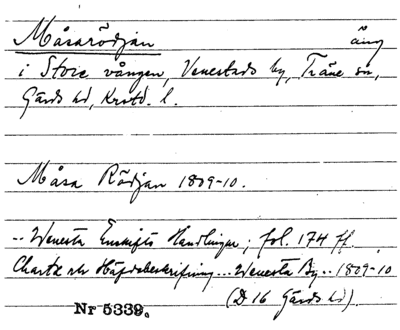 Måsarödjan äng
i Stoie vången, Venestads by, Träne sn,
Gärds hd, Krstd. l.
Måsa Rödjan 1809-10.
.. Wenesta Enskifts Handlingar; fol. 174 ff.
Charta och Häfdebeskrifning... Wenesta By.. 1809-10
(D 16 Gärds hd).
Nr 5339.